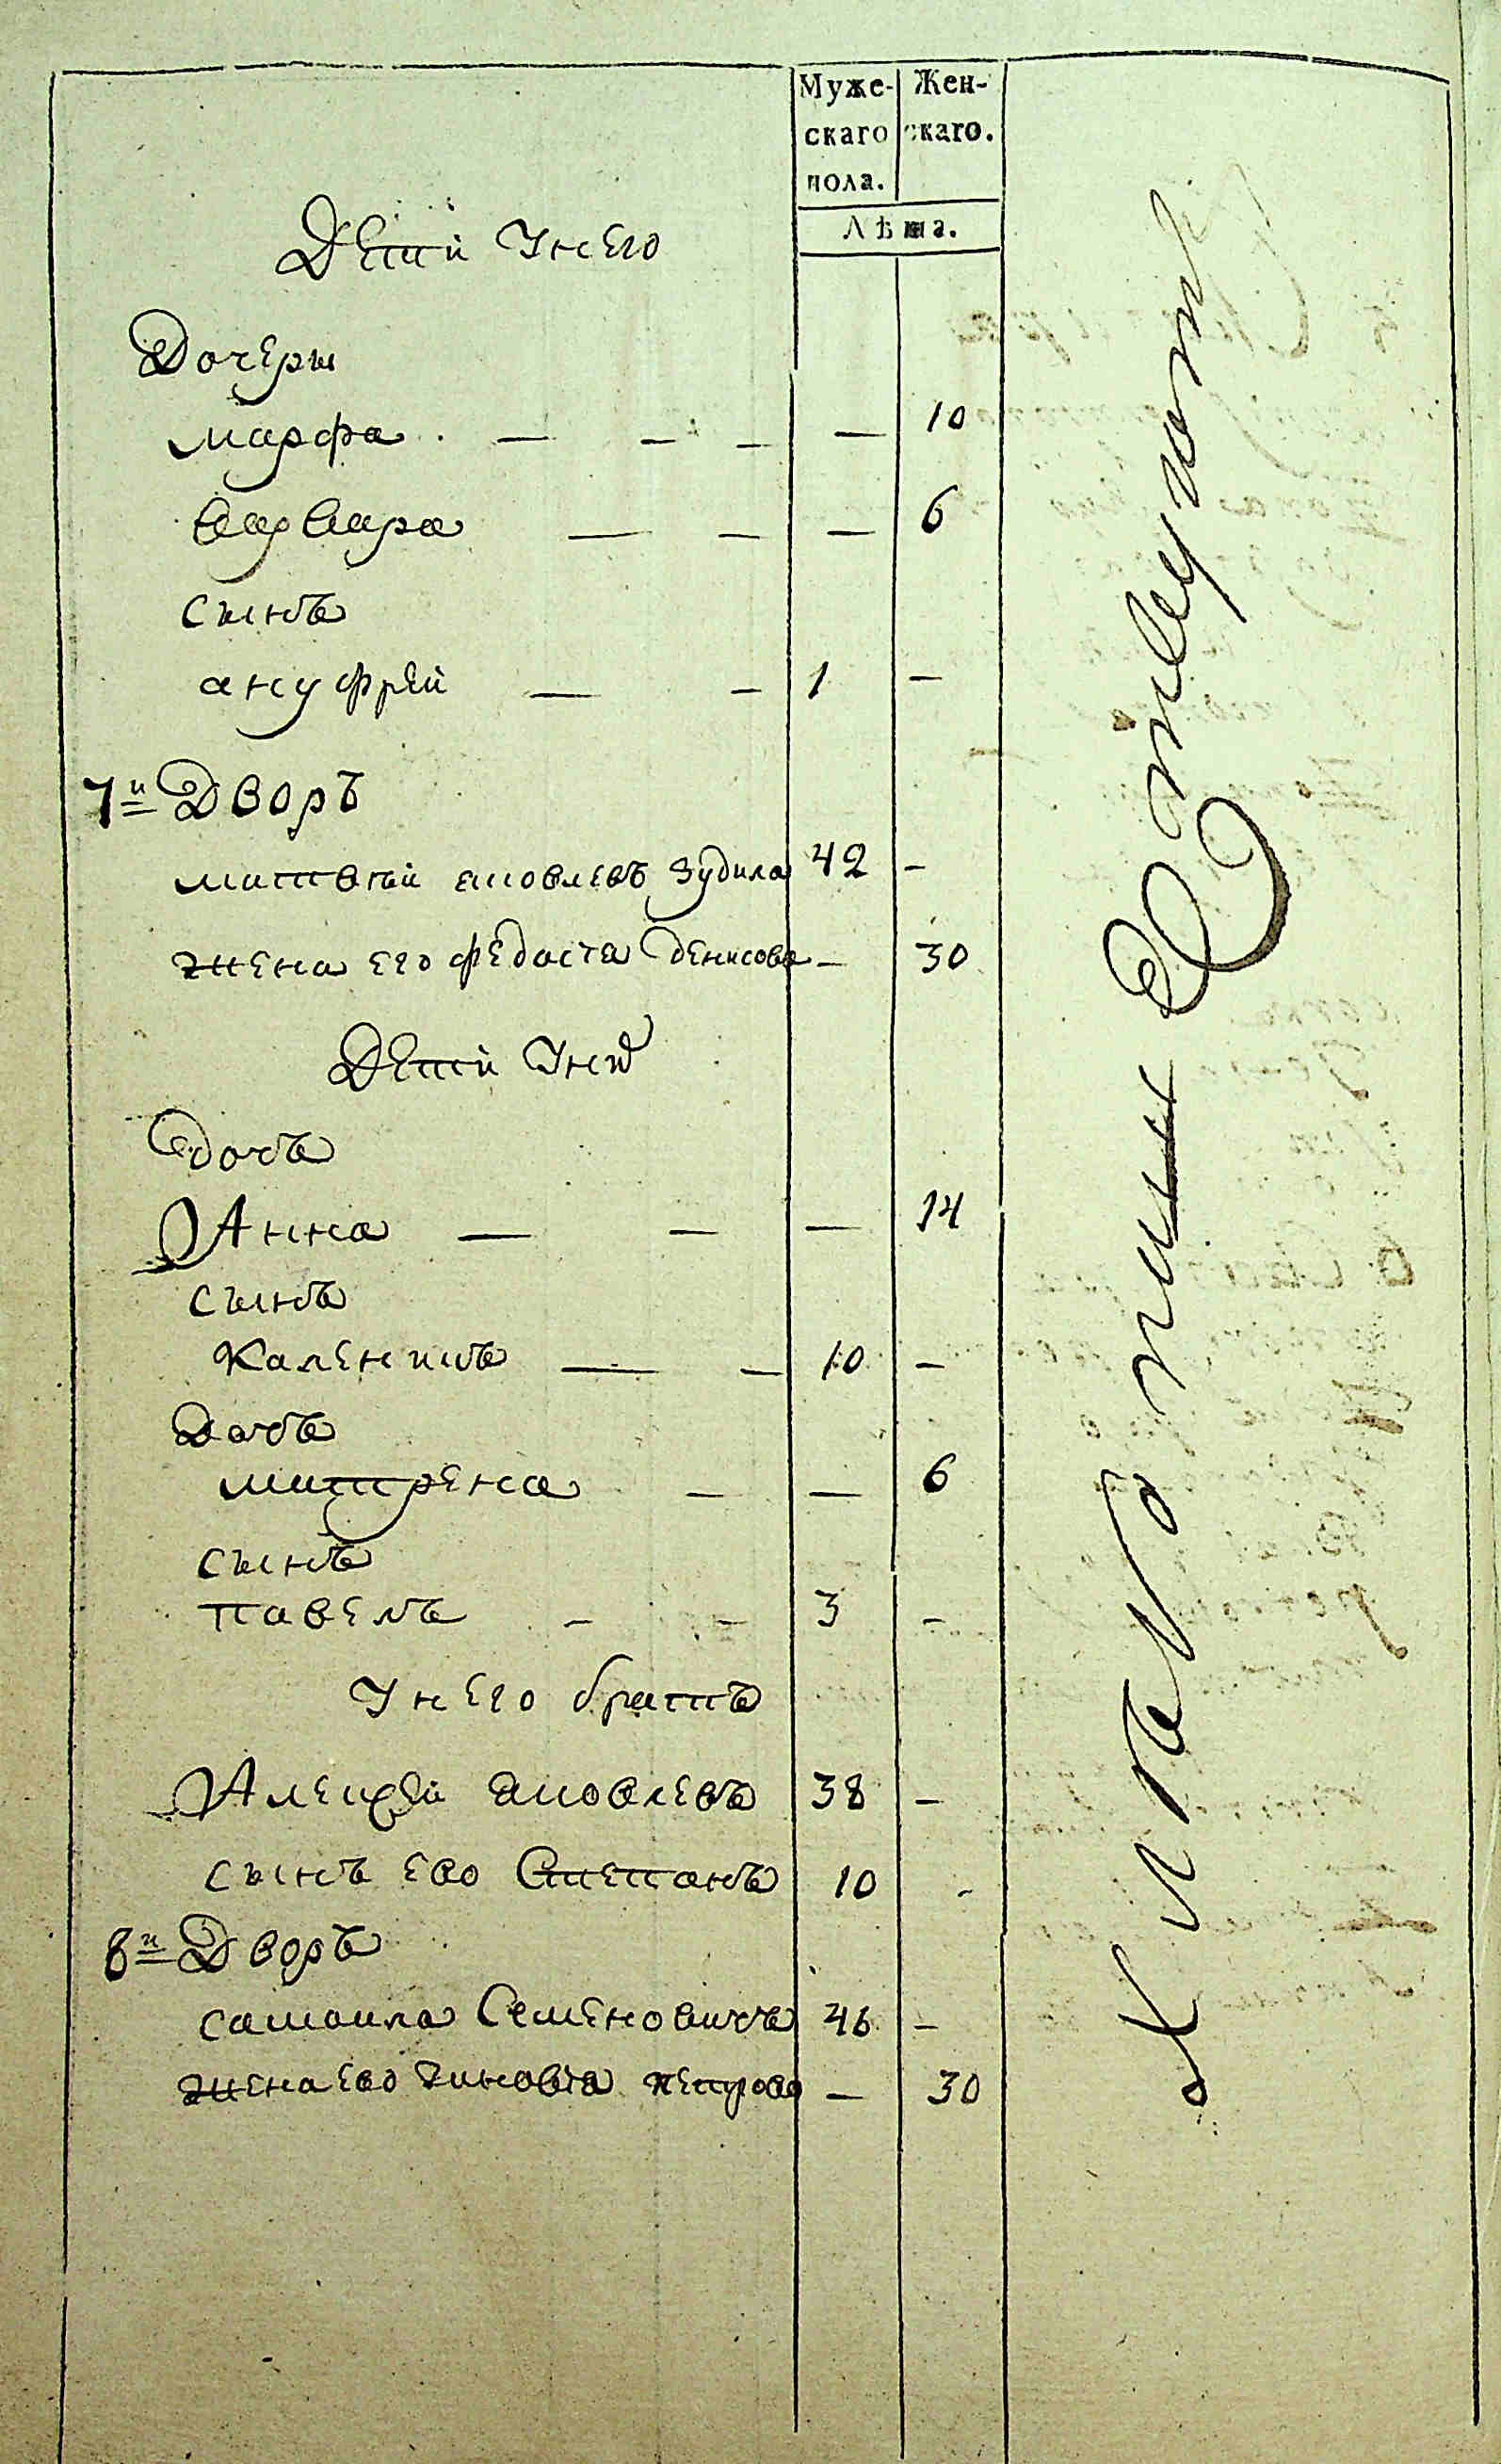 Муже-
скаго
пола.
Жен-
скаго.
Лѣта.
Дети Унего
Дочеры
марфа — — — — 10
варвара — — — 6
сынъ
ануфрей — — 1 —
7й Дворъ
матвѣй яковлевъ Зудила 42 —
жена его федосiа денисова — 30
Дети Унихъ
дочь
Анна — — — 14
сынъ
Каленикъ — — 10 —
Дочь
матрена — — 6
сынъ
павелъ — — 3 —
Унего братъ
Алеѯей яковлевъ 38 —
сынъ ево Степанъ 10 -
8й Дворъ
самоила Семеновичъ 46 —
жена ево Зиновiа петрова — 30